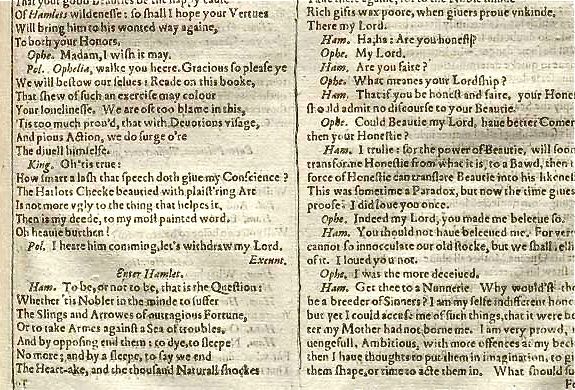 That your good Beauties be the happy cause
Of Hamlets wildenesse: so shall I hope your Vertues
Will bring him to his wonted way againe,
To both your Honors.
Ophe. Madam, I wish it may.
Pol. Ophelia, walke you heere. Gracious so please ye
We will bestow our selues: Reade on this booke,
That shew of such an exercise may colour
Your lonelinesse. We are oft too blame in this,
'Tis too much prou'd, that with Deuotions visage,
And pious Action, we do surge o're
The diuell himselfe.
King. Oh 'tis true:
How smart a lash that speech doth giue my Conscience?
The Harlots Cheeke beautied with plaist'ring Art
Is not more vgly to the thing that helpes it,
Then is my deede, to my most painted word.
Oh heauie burthen!
Pol. I heare him comming, let's withdraw my Lord.
Exeunt.
Enter Hamlet.
Ham. To be, or not to be, that is the Question:
Whether 'tis Nobler in the minde to suffer
The Slings and Arrowes of outragious Fortune,
Or to take Armes against a Sea of troubles,
And by opposing end them: to dye, to sleepe
No more; and by a sleepe, to say we end
The Heart-ake, and the thousand Naturall shockes
Rich gifts wax poore, when giuers proue vnkinde,
There my Lord.
Ham. Ha, ha: Are you honest?
Ophe. My Lord.
Ham. Are you faire?
Ophe. What meanes your Lordship?
Ham. That if you be honest and faire, your Hones
should admit no discourse to your Beautie.
Ophe. Could Beautie my Lord, haue better Comer
then your Honestie?
Ham. I trulie: for the power of Beautie, will soon
transforme Honestie from what it is, to a Bawd, then t
force of Honestie can translate Beautie into his likenes
This was sometime a Paradox, but now the time giues
proofe. I did loue you once.
Ophe. Indeed my Lord, you made me beleeue so.
Ham. You should not haue beleeued me. For vert
cannot so innocculate our old stocke, but we shall rell
of it. I loued you not.
Ophe. I was the more deceiued.
Ham. Get thee to a Nunnerie. Why would'st th
be a breeder of Sinners? I am my selfe indifferent hone
but yet I could accuse me of such things, that it were be
ter my Mother had not borne me. I am very prowd, r
uengefull, Ambitious, with more offences at my beck
then I haue thoughts to put them in imagination, to gi
them shape, or time to acte them in. What should su